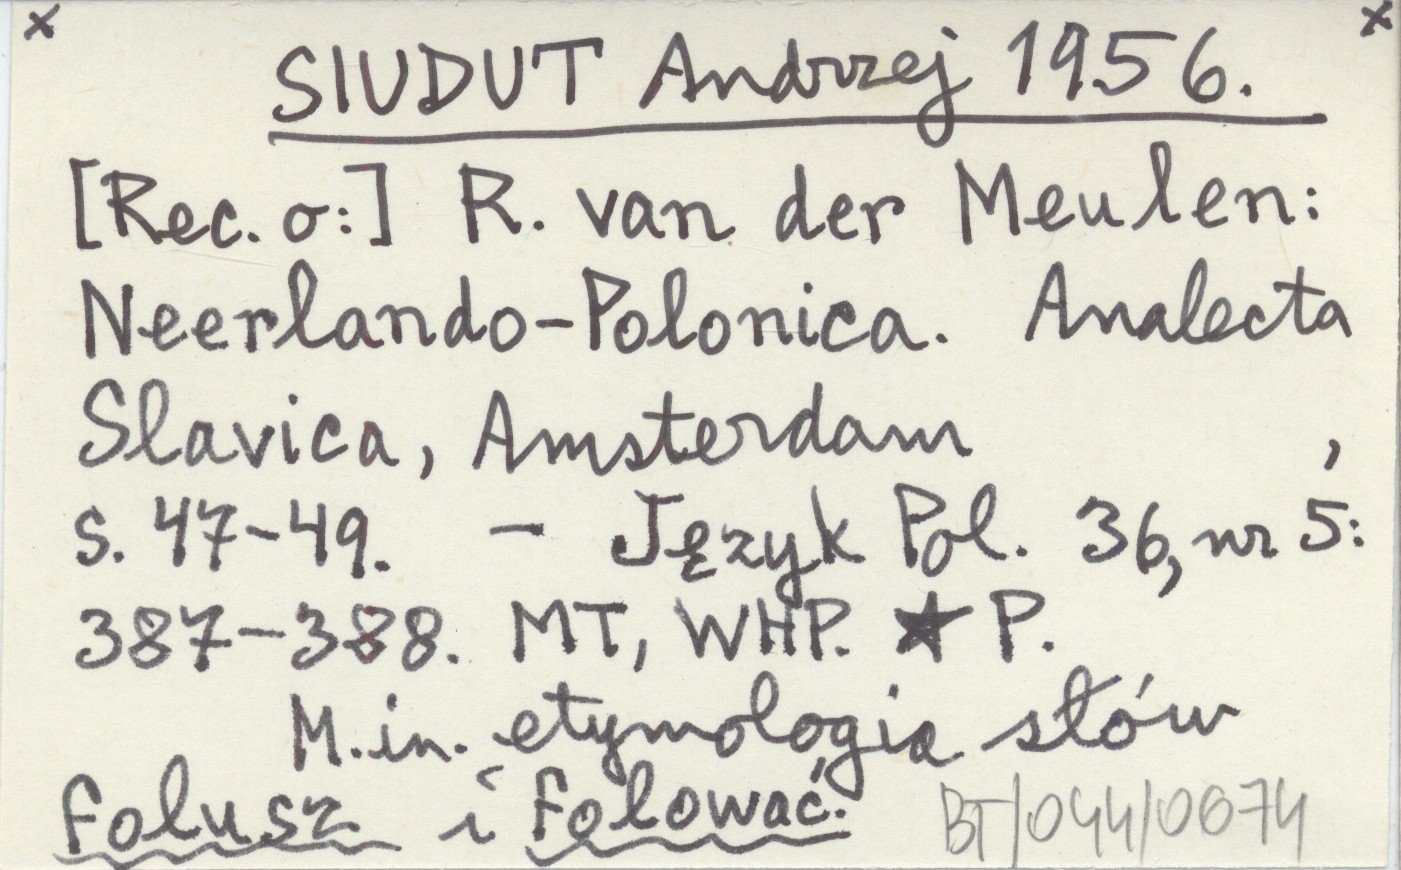 x x
SIUDUT Andrzej 1956.
[Rec. o:] R. van der Meulen:
Neerlando-Polonica. Analecta
Slavica, Amsterdam ,
s. 47-49. - Język Pol. 36, nr 5:
387-388. MT, WHP. ★ P.
M.in. etymologia słów
folusz i folować.
BT/044/0674